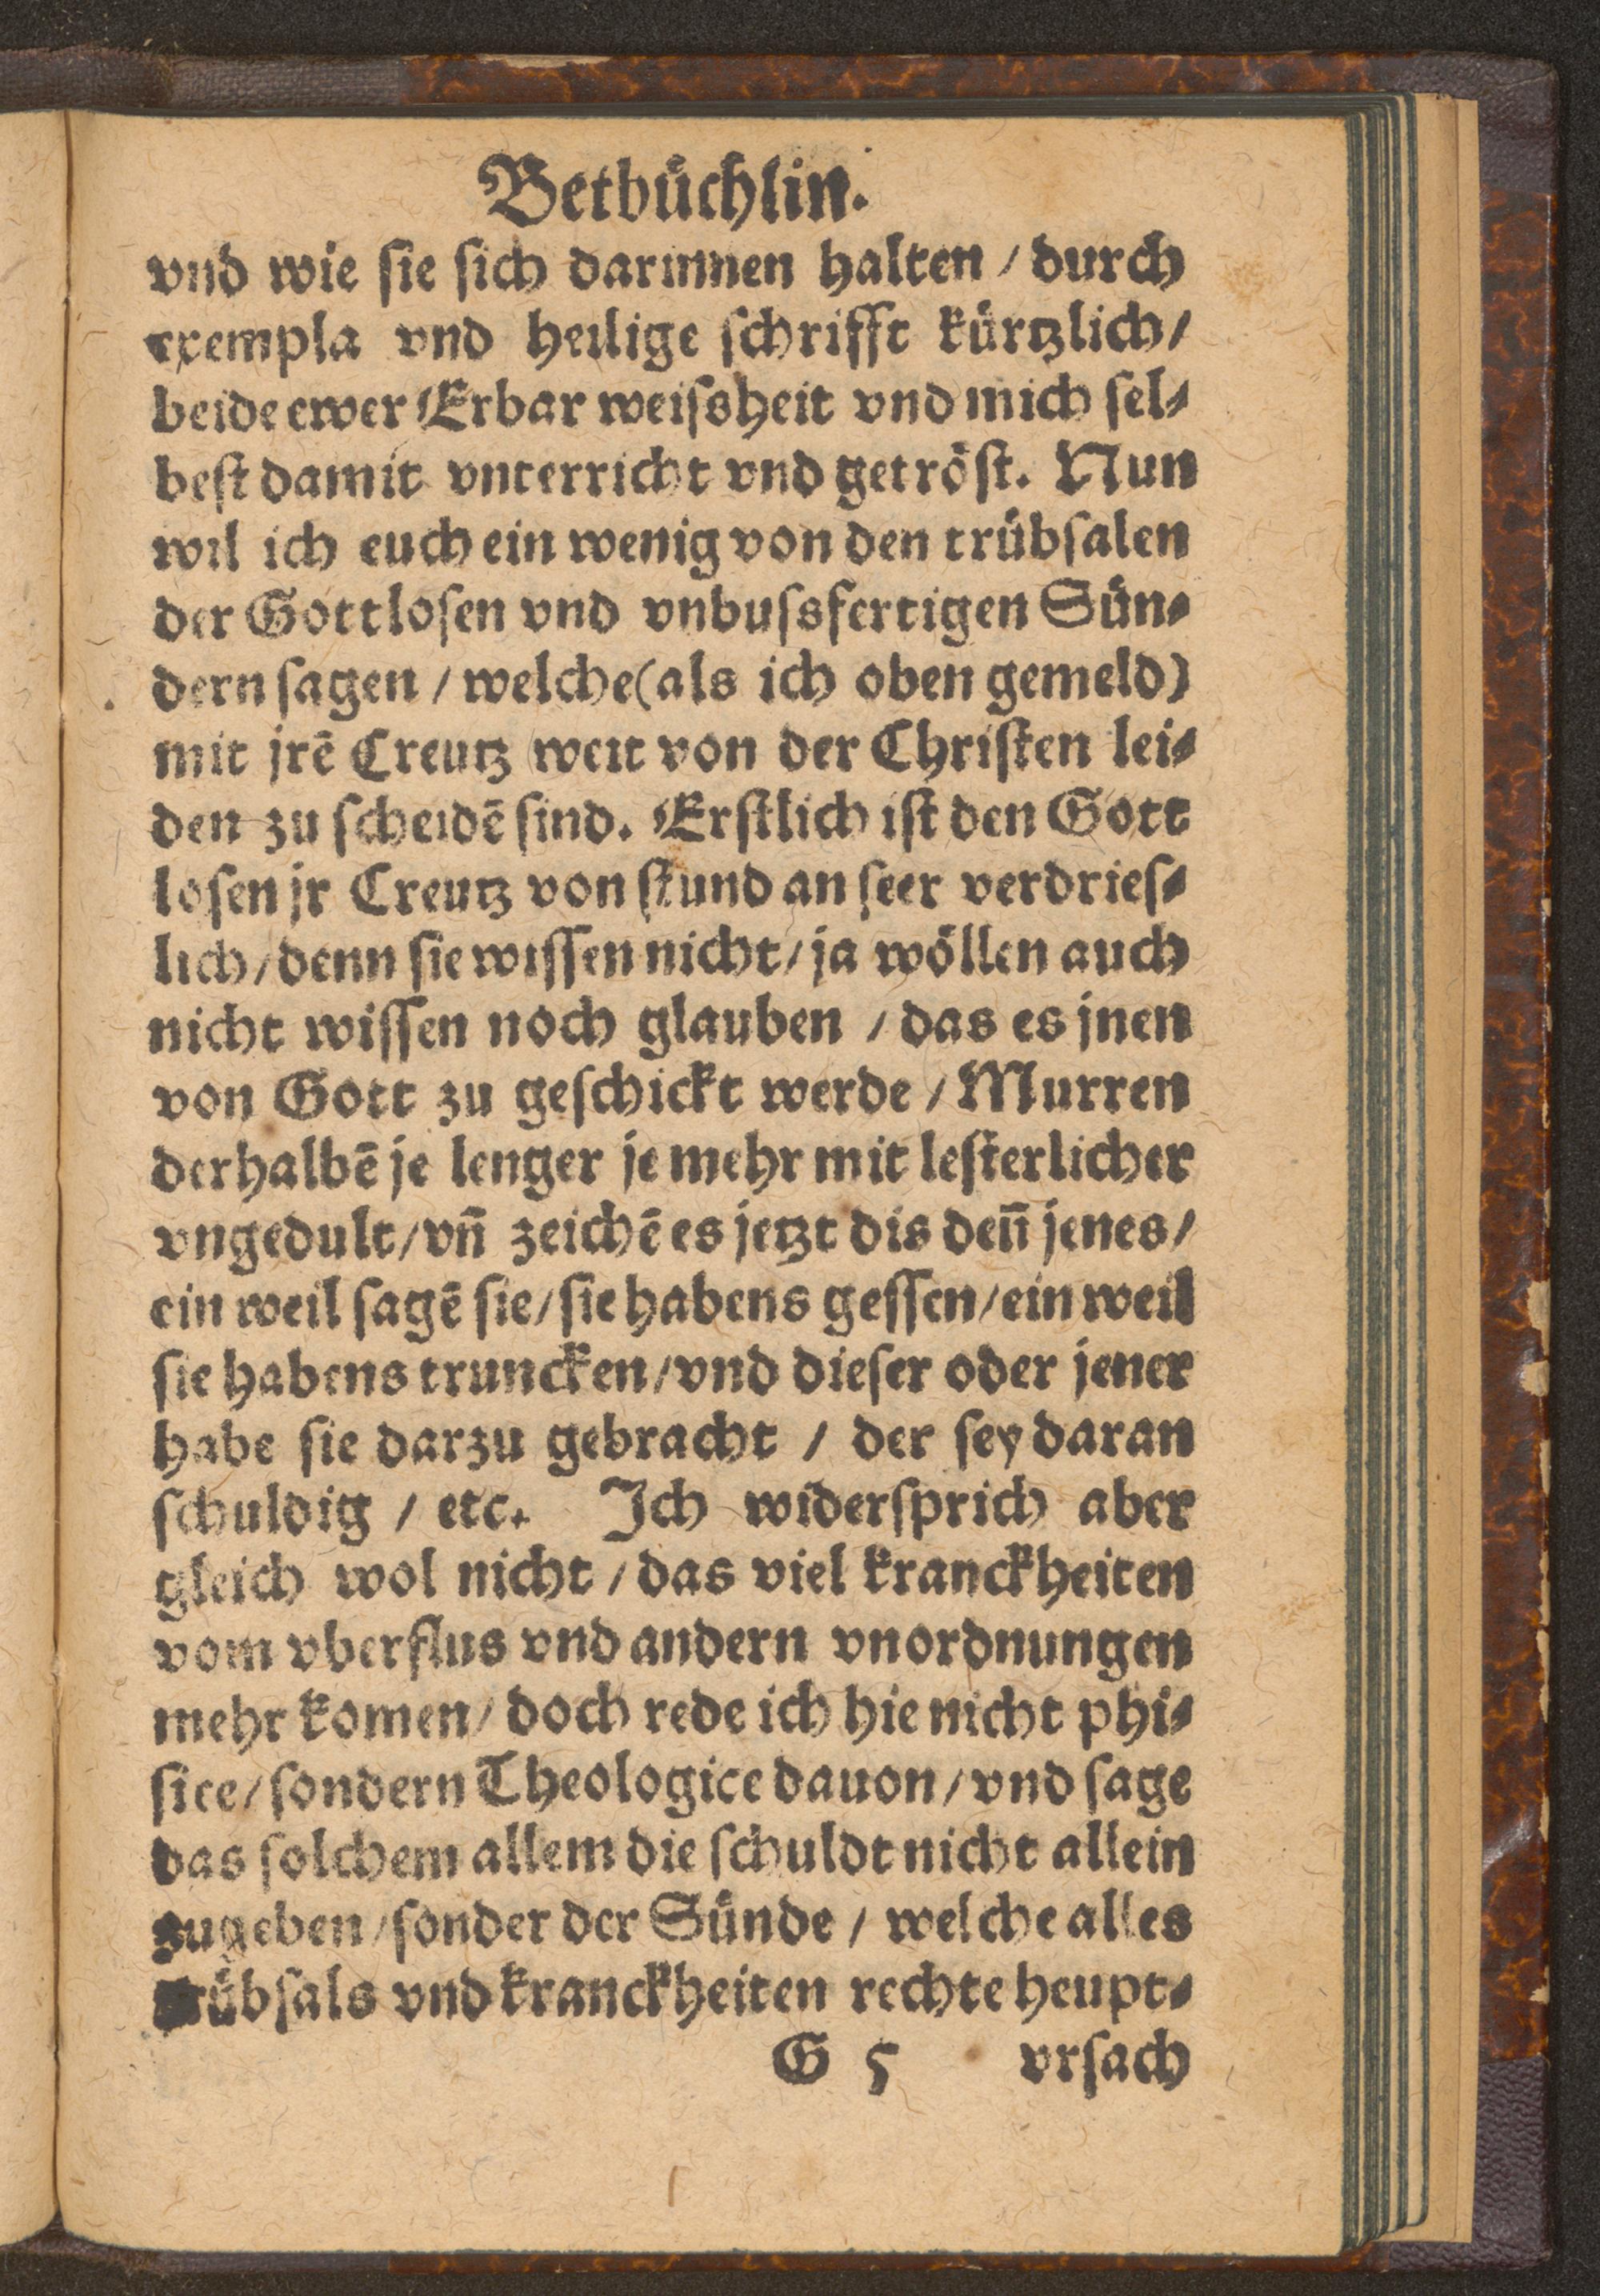 Betbüchlin.
vnd wie ſie ſich darinnen halten / durch
exempla vnd heilige ſchrifft kürtzlich/
beide ewer Erbar weiſsheit vnd mich ſel⸗
beſt damit vnterricht vnd getröſt. Nun
wil ich euch ein wenig von den trübſalen
der Gottloſen vnd vnbuſsfertigen Sün⸗
dern ſagen / welche (als ich oben gemeld)
mit jrē Creutz weit von der Chriſten lei⸗
den zu ſcheidē ſind. Erſtlich iſt den Gott
loſen jr Creutz von ſtund an ſeer verdrieſ⸗
lich / denn ſie wiſſen nicht / ja wöllen auch
nicht wiſſen noch glauben / das es jnen
von Gott zu geſchickt werde / Murren
derhalbē je lenger je mehr mit leſterlicher
vngedult / vn̄ zeichē es jetzt dis den̄ jenes /
ein weil ſagē ſie / ſie habens geſſen / ein weil
ſie habens truncken / vnd dieſer oder jener
habe ſie darzu gebracht / der ſey daran
ſchuldig / etc. Ich widerſprich aber
gleich wol nicht / das viel kranckheiten
vom vberflus vnd andern vnordnungen
mehr komen / doch rede ich hie nicht phi⸗
ſice / ſondern Theologice dauon / vnd ſage
das ſolchem allem die ſchuldt nicht allein
zugeben / ſonder der Sünde / welche alles
trübſals vnd kranckheiten rechte heupt⸗
G 5 vrſach